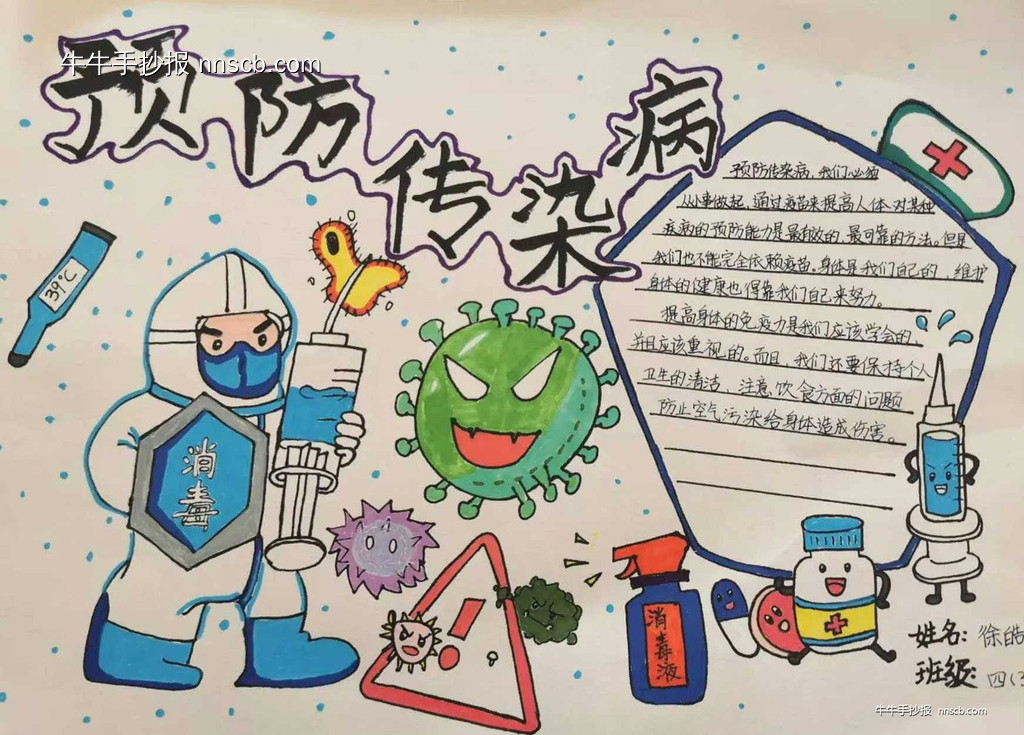 牛牛手抄报 nnscb.com
预防传染病
39℃
消毒
预防传染病，我们必须
从小事做起，通过疫苗来提高人体对某种
疾病的预防能力是最有效的，最可靠的方法。但是
我们也不能完全依赖疫苗。身体是我们自己的，维护
身体的健康也得靠我们自己来努力。
提高身体的免疫力是我们应该学会的，
并且应该重视的。而且，我们还要保持个人
卫生的清洁，注意饮食方面的问题
防止空气污染给身体造成伤害。
消毒液
姓名：徐皓
班级：四(3
牛牛手抄报 nnscb.com